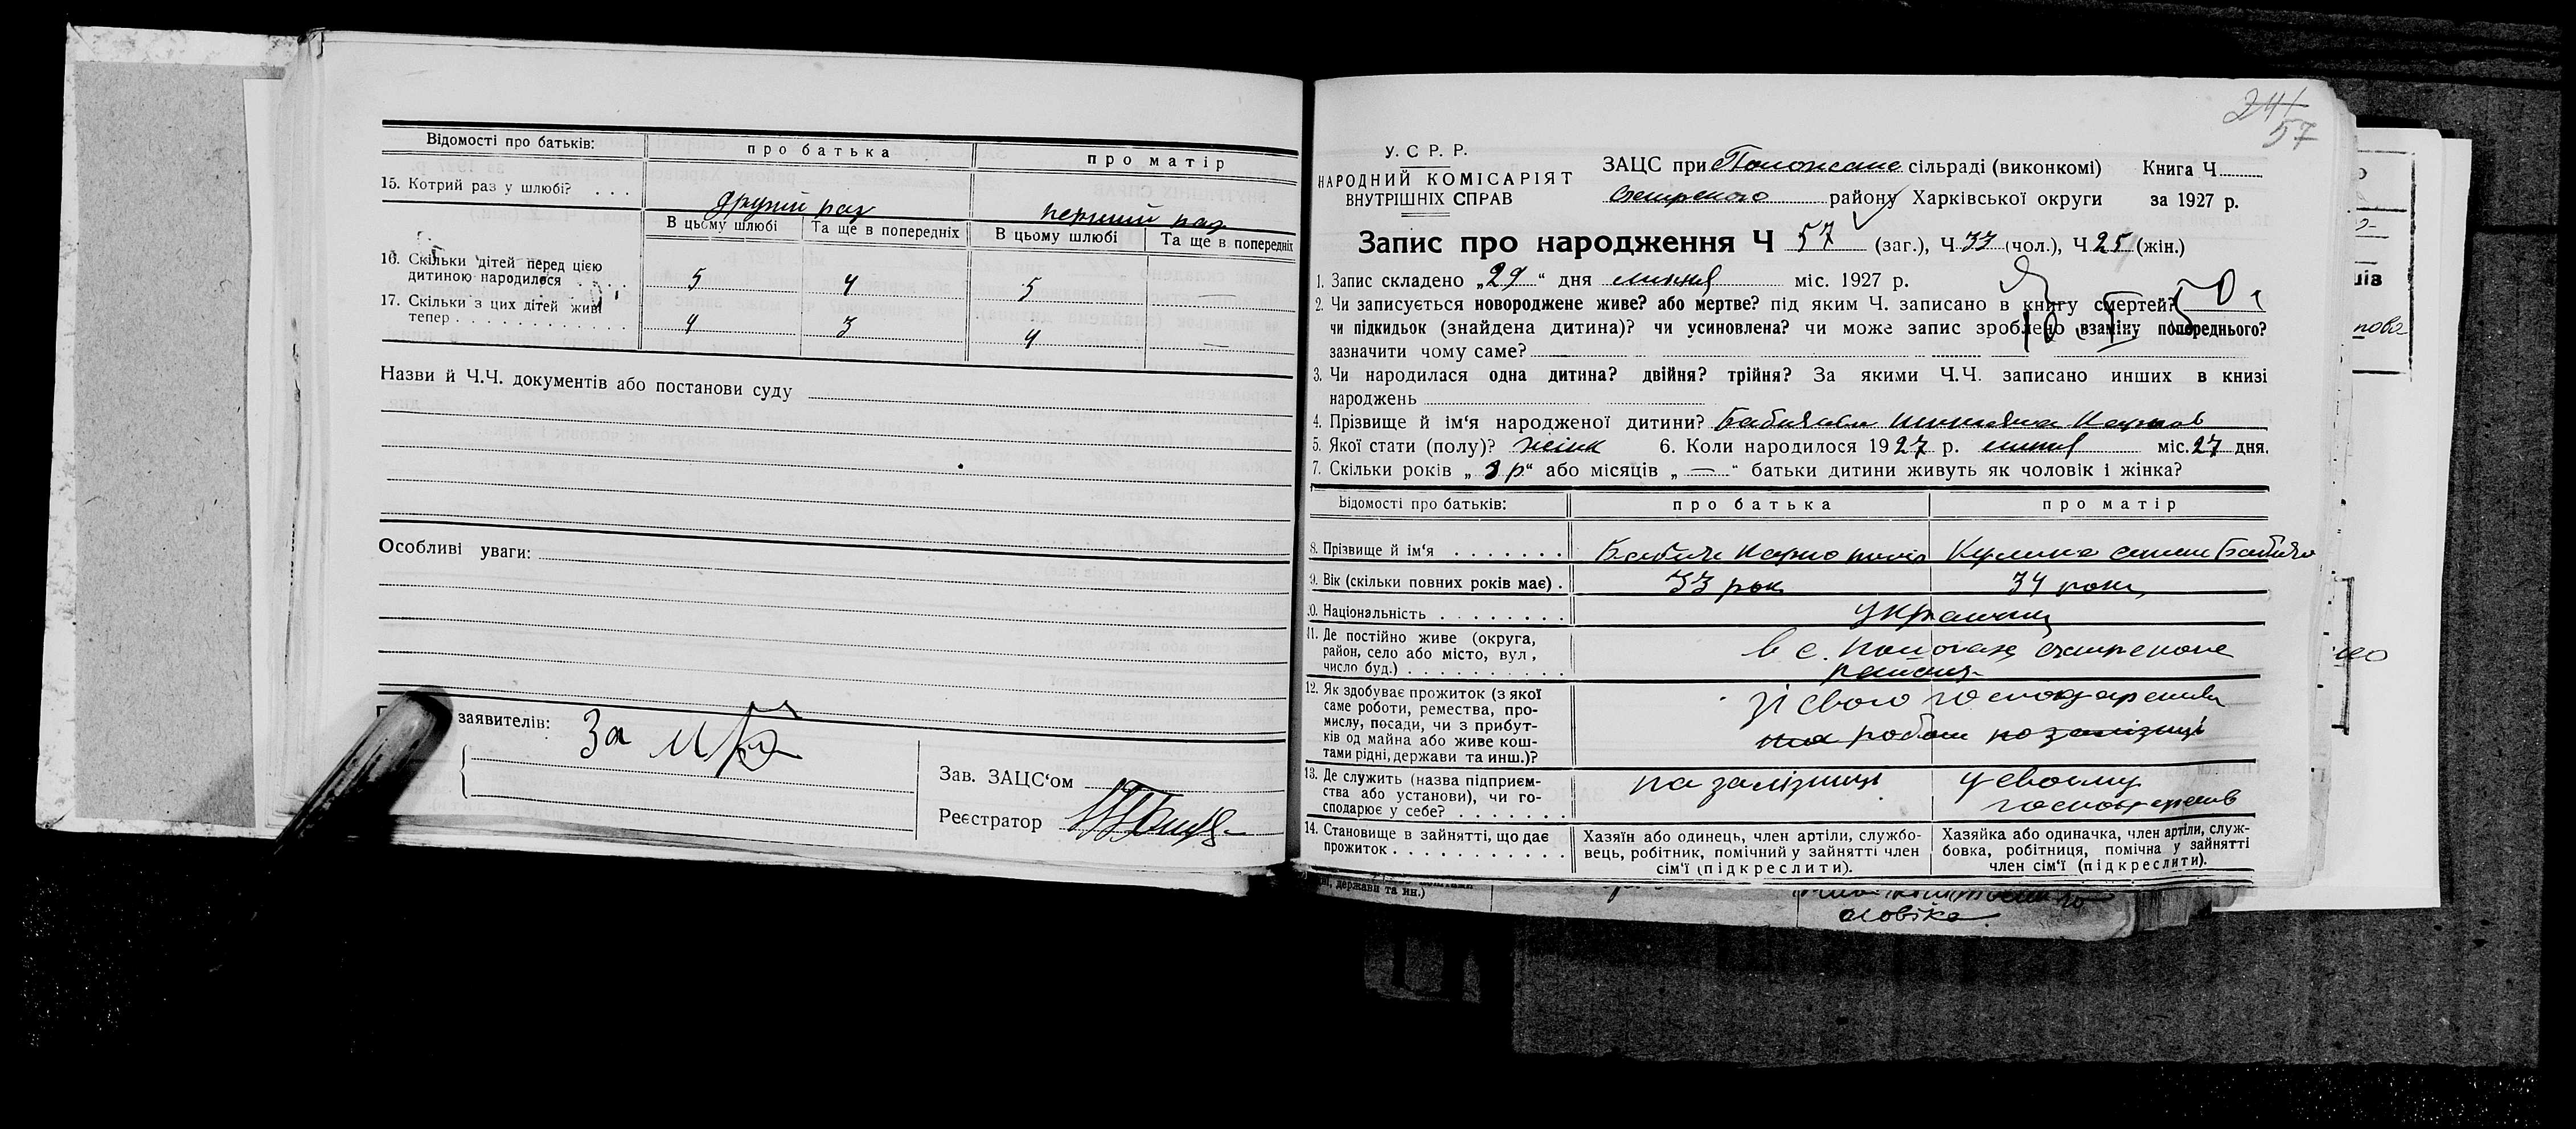 Відомості про батьків: про батька про матір
15. Котрий раз у шлюбі? . . . другий раз перший раз
В цьому шлюбі Та ще в попередніх В цьому шлюбі Та ще в попередніх
16. Скільки дітей перед цією
дитиною народилося . . . 5 4 5 —
17. Скільки з цих дітей живі
тепер . . . . . . . . . . . . . 4 3 4 —
Назви й Ч.Ч. документів або постанови суду
Особливі уваги:
заявителів:
За
Зав. ЗАЦС‘ом
Реєстратор
24/
57
У. С. Р. Р.
НАРОДНИЙ КОМІСАРІЯТ
ВНУТРІШНІХ СПРАВ
ЗАЦС при сільраді (виконкомі) Книга Ч
району Харківської округи за 1927 р.
Запис про народження Ч 57 (заг.), Ч 33 (чол.), Ч 25 (жін.)
1. Запис складено „29“ дня липня міс. 1927 р.
2. Чи записується новороджене живе? або мертве? під яким Ч. записано в книгу смертей?
чи підкидьок (знайдена дитина)? чи усиновлена? чи може запис зроблено взаміну попереднього?
зазначити чому саме?
3. Чи народилася одна дитина? двійня? трійня? За якими Ч.Ч. записано инших в книзі
народжень
4. Прізвище й ім‘я народженої дитини?
5. Якої стати (полу)? жінк 6. Коли народилося 1927 р. липня міс. 27 дня.
7. Скільки років „ р“ або місяців „ — “ батьки дитини живуть як чоловік і жінка?
Відомості про батьків: про батька про матір
8. Прізвище й ім‘я . . . . . . .
9. Вік (скільки повних років має) . 33 рок 34 роки
10. Національність . . . . . . . . українці
11. Де постійно живе (округа,
район, село або місто, вул.,
число буд.) . . . . . . . . . . в с.
12. Як здобуває прожиток (з якої
саме роботи, ремества, про-
мислу, посади, чи з прибут-
ків од майна або живе кош-
тами рідні, держави та инш.)?
зі свого господарства
13. Де служить (назва підприєм-
ства або установи), чи го-
сподарює у себе? . . . . . . .
на залізниці у своєму
14. Становище в зайнятті, що дає
прожиток . . . . . . . . . . . .
Хазяїн або одинець, член артіли, службо-
вець, робітник, помічний у зайнятті член
сім‘ї (підкреслити).
Хазяйка або одиначка, член артіли, служ-
бовка, робітниця, помічна у зайнятті
член сім‘ї (підкреслити).
держави та ин.)